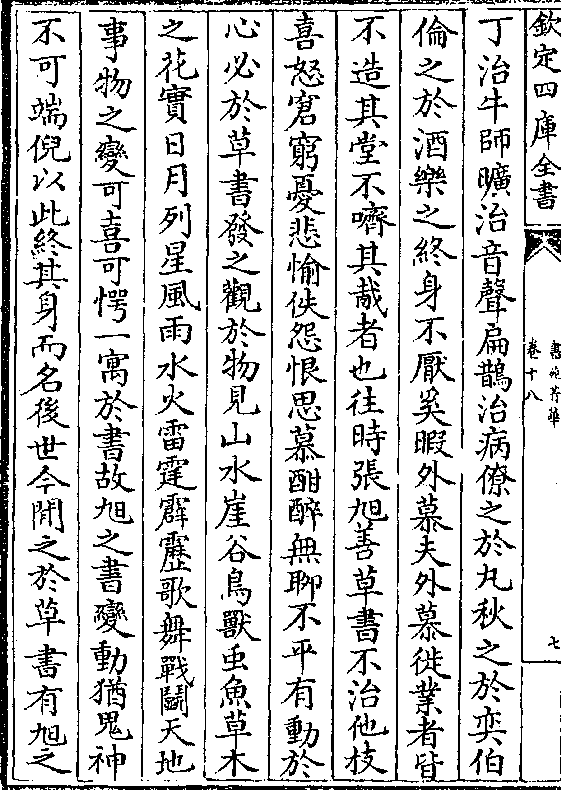 欽定四庫全書
書苑菁華
卷十八
七
丁治牛師曠治音聲扁鵲治病僚之於丸秋之於奕伯
倫之於酒樂之終身不厭奚暇外慕夫外慕徙業者皆
不造其堂不嚌其胾者也往時張旭善草書不治他枝
喜怒窘窮憂悲愉佚怨恨思慕酣醉無聊不平有動於
心必於草書發之觀於物見山水崖谷鳥獸虫魚草木
之花實日月列星風雨水火雷霆霹靂歌舞戰鬭天地
事物之變可喜可愕一寓於書故旭之書變動猶鬼神
不可端倪以此終其身而名後世今閒之於草書有旭之